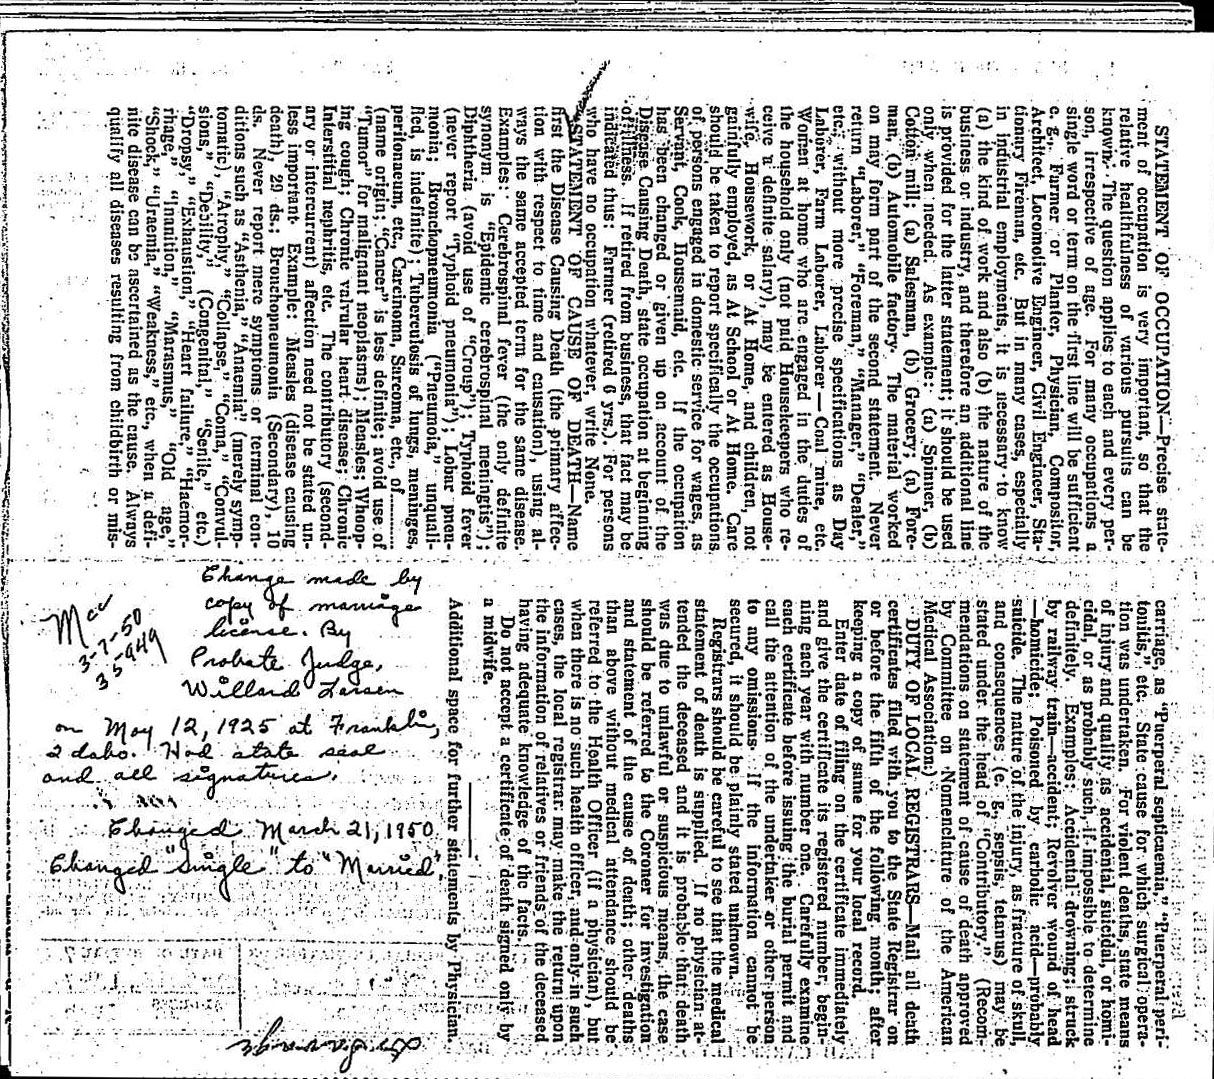 STATEMENT OF OCCUPATION—Precise state-
ment of occupation is very important, so that the
relative healthfulness of various pursuits can be
known. The question applies to each and every per-
son, irrespective of age. For many occupations a
single word or term on the first line will be sufficient
e. g., Farmer or Planter, Physician, Compositor,
Architect, Locomotive Engineer, Civil Engineer, Sta-
tionary Fireman, etc. But in many cases, especially
in industrial employments, it is necessary to know
(a) the kind of work and also (b) the nature of the
business or industry, and therefore an additional line
is provided for the latter statement; it should be used
only when needed. As example: (a) Spinner, (b)
Cotton mill; (a) Salesman, (b) Grocery; (a) Fore-
man, (b) Automobile factory. The material worked
on may form part of the second statement. Never
return "Laborer," "Foreman," "Manager," "Dealer,"
etc., without more precise specifications as Day
Laborer, Farm Laborer, Laborer—Coal mine, etc.
Women at home who are engaged in the duties of
the household only (not paid Housekeepers who re-
ceive a definite salary), may be entered as House-
wife, Housework, or At Home, and children, not
gainfully employed, as At School or At Home. Care
should be taken to report specifically the occupations
of persons engaged in domestic service for wages, as
Servant, Cook, Housemaid, etc. If the occupation
has been changed or given up on account of the
Disease Causing Death, state occupation at beginning
of illness. If retired from business, that fact may be
indicated thus: Farmer (retired 6 yrs.). For persons
who have no occupation whatever, write None.
STATEMENT OF CAUSE OF DEATH—Name
first the Disease Causing Death (the primary affec-
tion with respect to time and causation), using al-
ways the same accepted term for the same disease.
Examples: Cerebrospinal fever (the only definite
synonym is "Epidemic cerebrospinal meningtis");
Diphtheria (avoid use of "Croup"); Typhoid fever
(never report "Typhoid pneumonia"); Lobar pneu-
monia; Bronchopneumonia ("Pneumoia," unquali-
fied, is indefinite); Tuberculosis of lungs, meninges,
perilonaeum, etc., Carcinoma, Sarcoma, etc., of
(name origin; "Cancer" is less definite; avoid use of
"Tumor" for malignant neoplasms); Measles; Whoop-
ing cough; Chronic valvular heart disease; Chronic
Interstitial nephritis, etc. The contributory (second-
ary or intercurrent) affection need not be stated un-
less important. Example: Measles (disease causing
death), 29 ds.; Bronchopneumonia (Secondary), 10
ds. Never report mere symptoms or terminal con-
ditions such as "Asthenia," "Anaemia" (merely symp-
tomatic), "Atrophy," "Collapse," "Coma," "Convul-
sions," "Debility," (Congenital," "Senile," etc.)
"Dropsy," "Exhaustion," "Heart failure," "Haemor-
rhage," "Inanition," "Marasmus," "Old age,"
"Shock," "Uraemia," "Weakness," etc., when a defi-
nite disease can be ascertained as the cause. Always
qualify all diseases resulting from childbirth or mis-
carriage, as "Puerperal septicaemia," "Puerperal peri-
tonitis," etc. State cause for which surgical opera-
tion was undertaken. For violent deaths, state means
of injury and qualify as accidental, suicidal, or homi-
cidal, or as probably such, if impossible to determine
definitely. Examples: Accidental drowning; struck
by railway train—accident; Revolver wound of head
—homicide; Poisoned by carbolic acid—probably
suicide. The nature of the injury, as fracture of skull,
and consequences (e. g., sepsis, tetanus) may be
stated under the head of "Contributory." (Recom-
mendations on statement of cause of death approved
by Committee on Nomenclature of the American
Medical Association.)
DUTY OF LOCAL REGISTRARS—Mail all death
certificates filed with you to the State Registrar on
or before the fifth of the following month; after
keeping a copy of same for your local record.
Enter date of filing on the certificate immediately
and give the certificate its registered number, begin-
ning each year with number one. Carefully examine
each certificate before issuing the burial permit and
call the attention of the undertaker or other person
to any omissions. If the information cannot be
secured, it should be plainly stated unknown.
Registrars should be careful to see that the medical
statement of death is supplied. If no physician at-
tended the deceased and it is probable that death
was due to unlawful or suspicious means, the case
should be referred to the Coroner for investigation
and statement of the cause of death; other deaths
than above without medical attendance should be
referred to the Health Officer (if a physician), but
when there is no such health officer, and only in such
cases, the local registrar may make the return upon
the information of relatives or friends of the deceased
having adequate knowledge of the facts.
Do not accept a certificate of death signed only by
a midwife.
Additional space for further statements by Physician.
Change made by
copy of marriage
license. By
Probate Judge,
Willard Larsen
on May 12, 1925 at Franklin,
Idaho. Had state seal
and all signatures.
Changed March 21, 1950
Changed "Single" to "Married".
3-7-50
35949